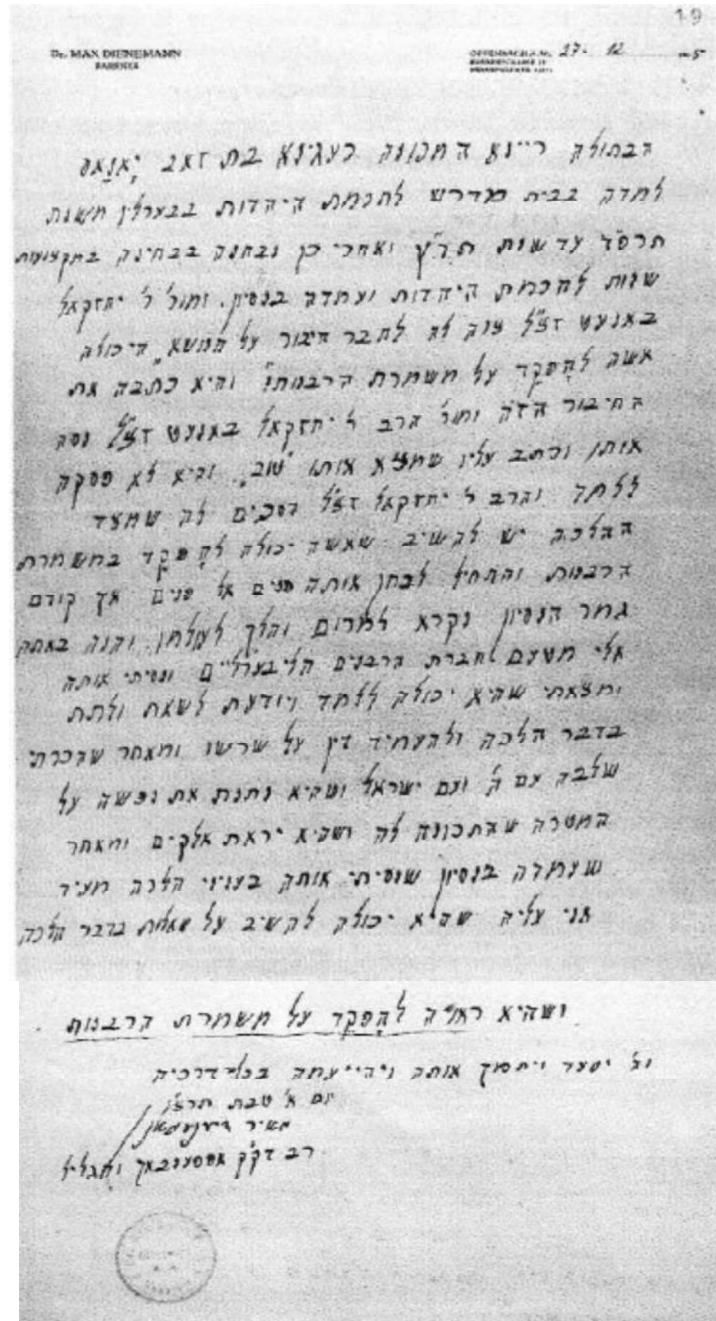 19
Dr. MAX DIENEMANN
RABBINER
OFFENBACH A.M. 27. 12 5
הבתולה ריינא המכונה רעגינא בת זאב יָאנַאס
למדה בבית מדרש לחכמת היהדות בבערלין משנת
תרפ״ד עד שנת תר״ץ ואחרי כן נבחנה בבחינה במקצועות
שנות לחכמת היהדות ועמדה בנסיון. ומור׳ ר׳ יחזקאל
באנעט זצ״ל צוה לה לחבר חיבור על הנושא „היכולה
אשה להִפָּקֵד על משמרת הרבנות?״ והיא כתבה את
החיבור הזה ומור׳ הרב ר׳ יחזקאל באנעט זצ״ל נסה
אותו וכתב עליו שמצא אותו „טוב״. והיא לא פסקה
ללמד והרב ר׳ יחזקאל זצ״ל הסכים לה שמצד
ההלכה יש להשיב שאשה יכולה להִפָּקֵד במשמרת
הרבנות והתחיל לבחן אותה פנים אל פנים אך קודם
גמר הנסיון נקרא למרום והלך לעולמו. והנה באתה
אלי מטעם לחברת הרבנים הליבעראליים ונסיתי אותה
ומצאתי שהיא יכולה ללמד ויודעת לשאת ולתת
בדבר הלכה ולהעמיד דין על שרשו ומאחר שהכרתי
שלבה עם ה׳ ועם ישראל ושהיא נתנת את נפשה על
המטרה שהתכוונה לה ושהיא יראת אלקים ומאחר
שעמדה בנסיון שנסיתי אותה בעניני הלכה מעיד
אני עליה שהיא יכולה להשיב על שאלות בדבר הלכה
ושהיא ראויה להִפָּקֵד על משמרת הרבנות
וה׳ יסעד ויתמוך אותה ויהיי עמה בכל דרכיה
יום א׳ טבת תרצ״ו
מאיר דיענעמאן
רב דק״ק אפפענבאך והגליל